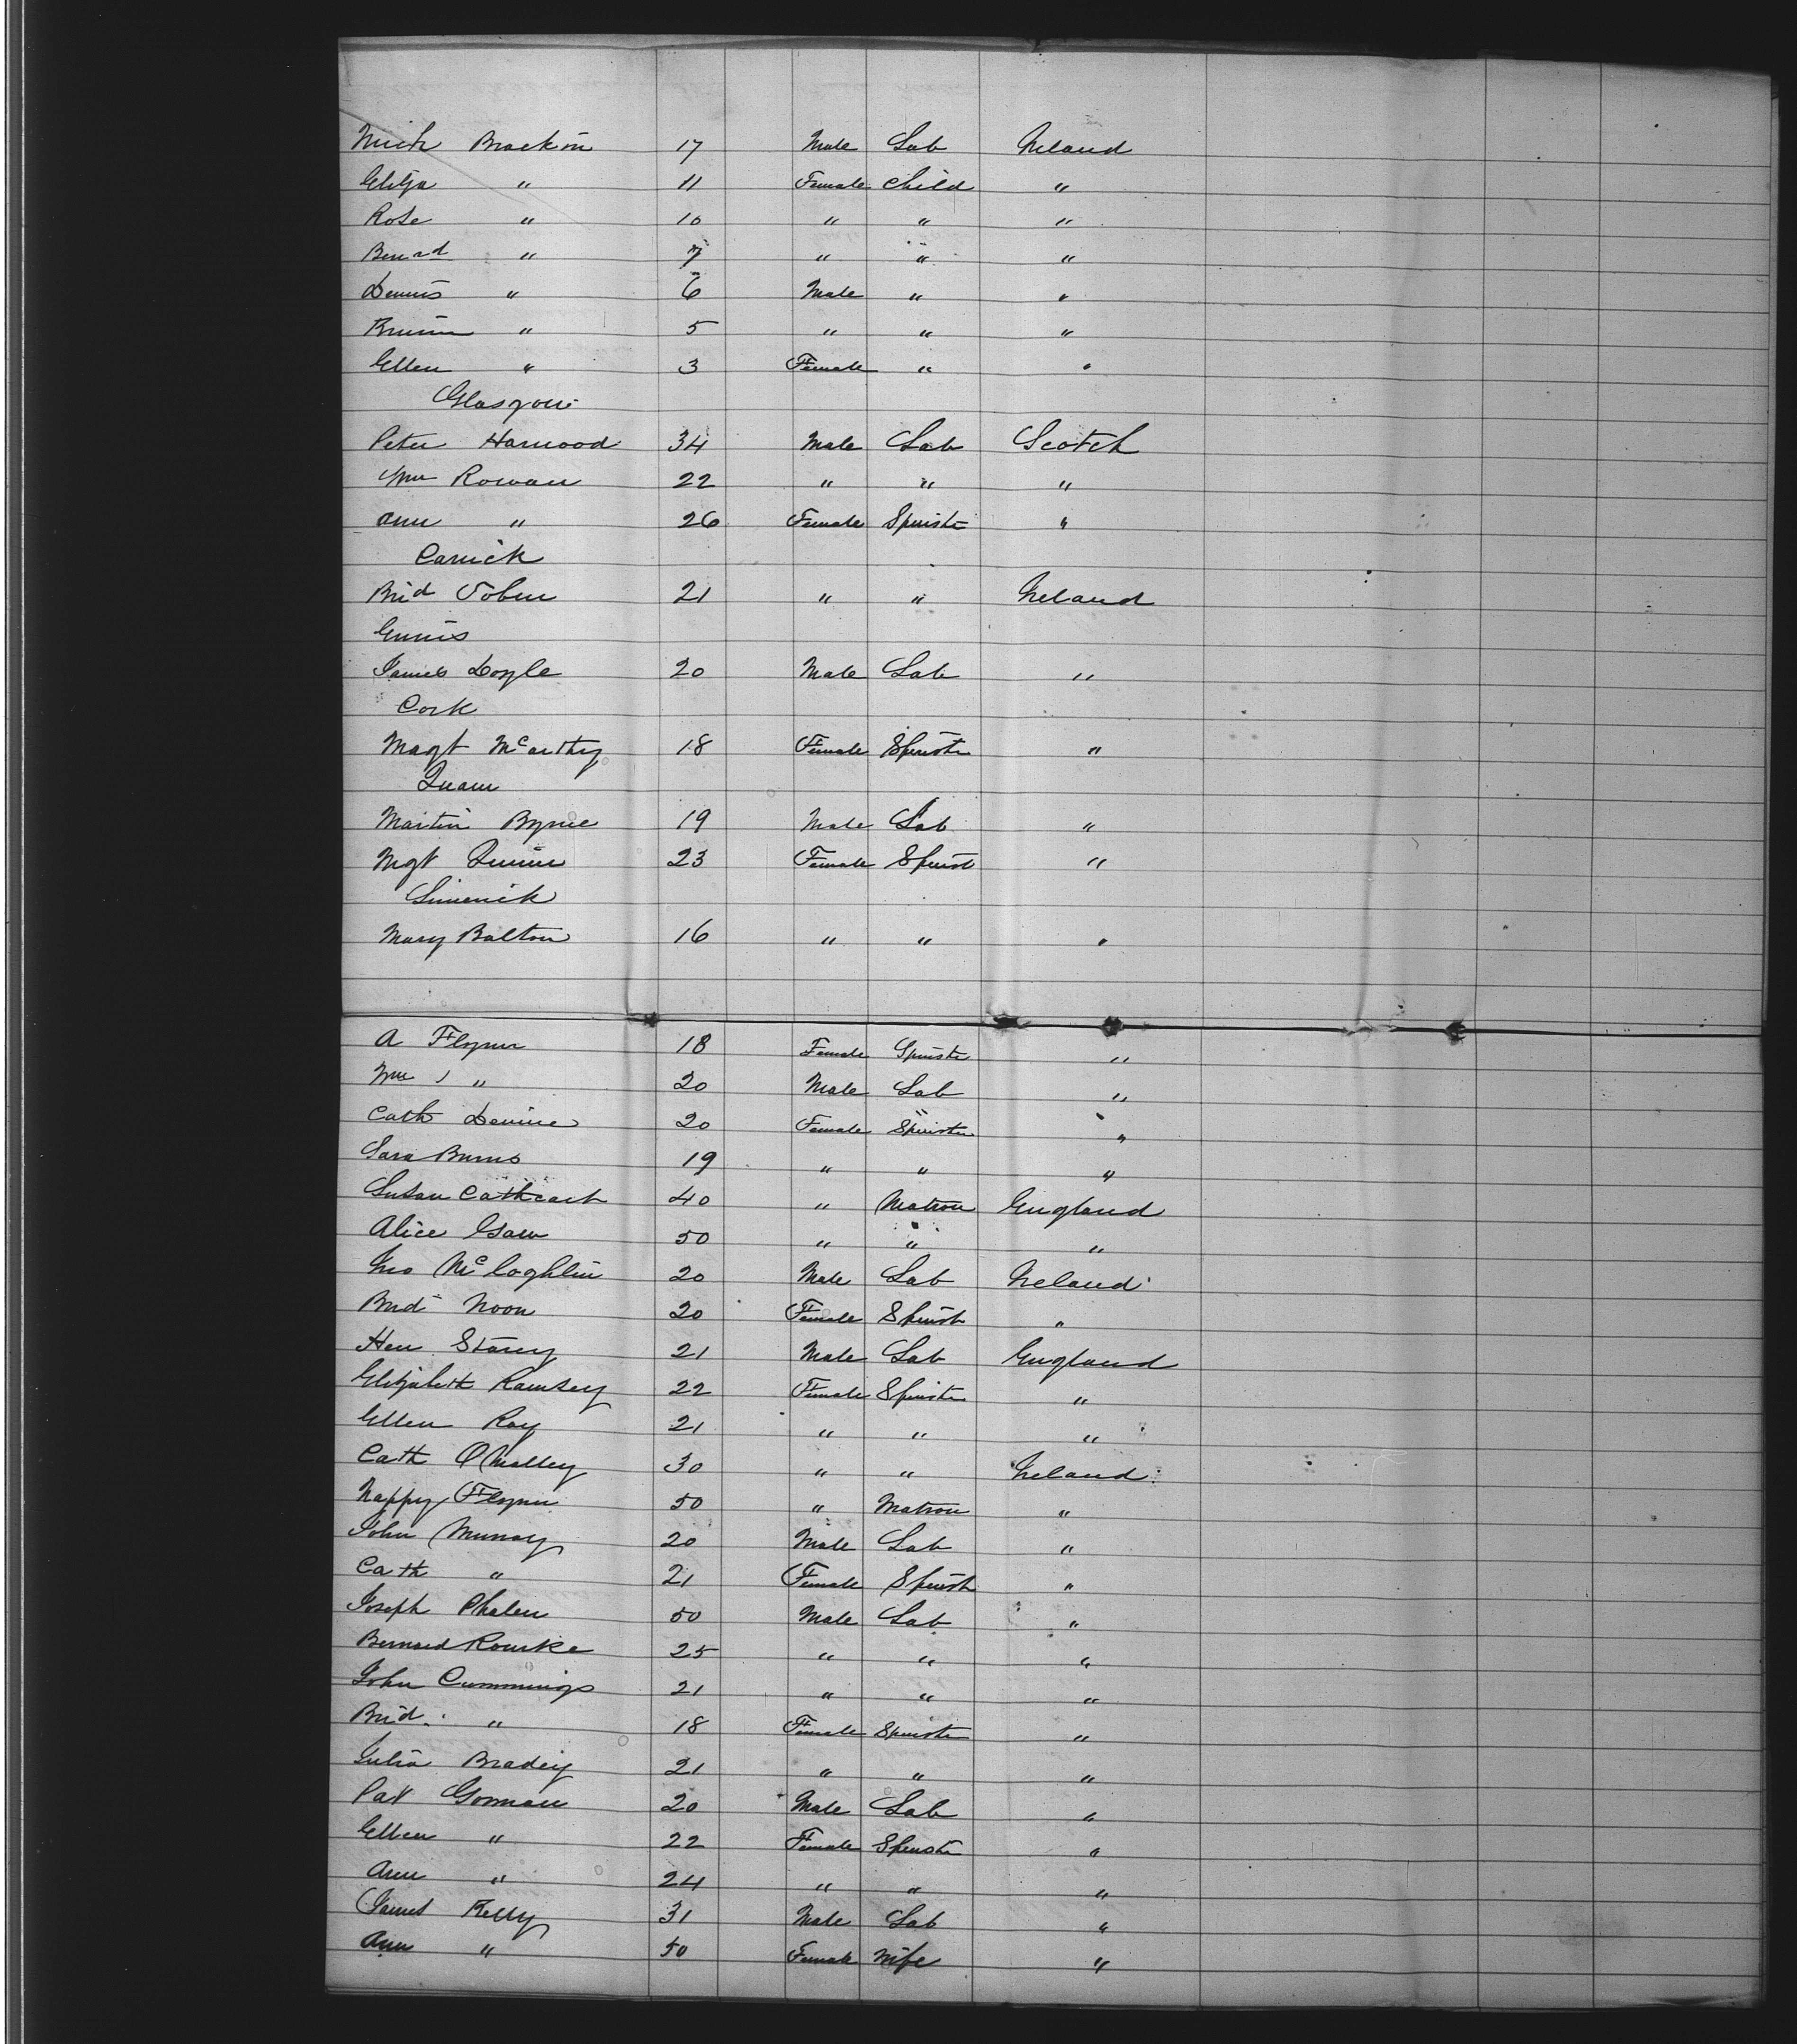 Mich Brackin 17 Male Lab Ireland
Eliza " 11 Female Child "
Rose " 10 " " "
Bernad " 7 " " "
Dennis " 6 Male " "
" 5 " " "
Ellen " 3 Female " "
Glasgow
Peter Harwood 34 Male Lab Scotch
Wm Rowan 22 " " "
Ann " 26 Female Spinster "
Carrick
Brid Tobin 21 " " Ireland
Ennis
James Doyle 20 Male Lab "
Cork
Magt McCarthy 18 Female Spinster "
Tuam
Martin Byrne 19 Male Lab "
Mgt Quinn 23 Female Spinst "
Limerick
Mary Balton 16 " " "
A Flynn 18 Female Spinster "
Wm J " 20 Male Lab "
Cath Devine 20 Female Spinster "
Sara Burns 19 " " "
Susan Cathcart 40 " Matron England
Alice Gaw 50 " " "
Jno McLoghlin 20 Male Lab Ireland
Brid Noon 20 Female Spinst "
Hen Storey 21 Male Lab England
Elizabeth Ramsey 22 Female Spinster "
Ellen Ray 21 " " "
Cath O'Malley 30 " " Ireland
Nappy Flynn 50 " Matron "
John Murray 20 Male Lab "
Cath " 21 Female Spinst "
Joseph Phelen 50 Male Lab "
Bernard Rourke 25 " " "
John Cummings 21 " " "
Brid. " 18 Female Spinster "
Julia Bradey 21 " " "
Pat Gorman 20 Male Lab "
Ellen " 22 Female Spinster "
Ann " 24 " " "
James Kelly 31 Male Lab "
Ann " 50 Female Wife "